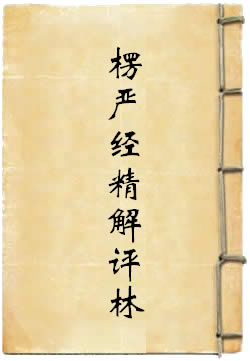 楞严经精解评林